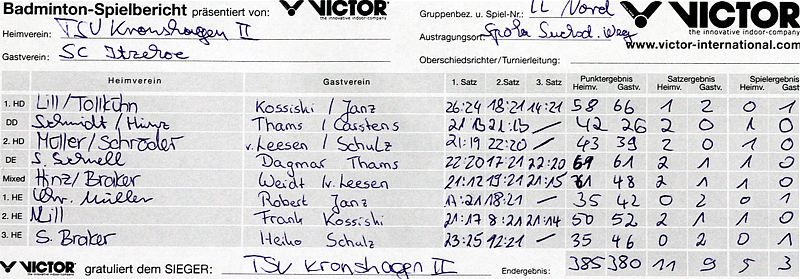 Badminton-Spielbericht präsentiert von: VICTOR the innovative indoor-company Gruppenbez. u. Spiel-Nr.: LL Nord VICTOR the innovative indoor-company
Heimverein: TSV Kronshagen II Austragungsort:
www.victor-international.com
Gastverein: SC Itzehoe Oberschiedsrichter/Turnierleitung:
Heimverein Gastverein 1. Satz 2. Satz 3. Satz Punktergebnis Satzergebnis Spielergebnis
Heimv. Gastv. Heimv. Gastv. Heimv. Gastv.
1. HD Lill/Tollkühn Kossiski / Janz 26:24 18:21 14:21 58 66 1 2 0 1
DD Schmidt/Hinz Thams / Casstens 21:13 21:13 – 42 26 2 0 1 0
2. HD Müller/Schröder v.Leesen / Schulz 21:19 22:20 – 43 39 2 0 1 0
DE S. Schnell Dagmar Thams 22:20 17:21 22:20 61 2 1 1 0
Mixed Hinz/Braker Weidt /v.Leesen 21:12 19:21 21:15 61 48 2 1 1 0
1. HE Chr. Müller Robert Janz 17:21 18:21 – 35 42 0 2 0 1
2. HE Lill Frank Kossiski 21:17 8:21 21:14 50 52 2 1 1 0
3. HE S. Braker Heiko Schulz 23:25 12:21 – 35 46 0 2 0 1
VICTOR gratuliert dem SIEGER: TSV Kronshagen II Endergebnis: 385 380 11 9 5 3